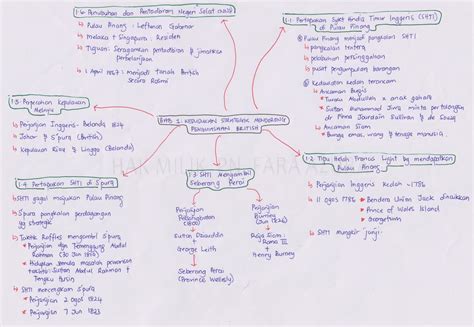 1.6 Penubuhan dan Pentadbiran Negeri Selat (NNS)
↳ Pulau Pinang : Leftenan Gabenor
↳ Melaka & Singapura : Residen
↳ Tujuan: Seragamkan pentadbiran & jimatkan
perbelanjaan
↳ 1 April 1867 : menjadi tanah British
secara rasmi
1.1 Pertapakan Syktt Hindia Timur Inggeris (SHTI)
di Pulau Pinang
Pulau Pinang menjadi pangkalan SHTI
↳ pangkalan tentera
↳ pelabuhan perdagangan
↳ pusat pengumpulan barangan
Kedaulatan Kedah terancam
↳ Ancaman Bugis
↳ Sultan Muhammad Jiwa minta pertolongan
dr Monckton
↳ Ancaman Siam
↳ Bunga emas, wang & tenaga manusia.
1.5 Pemecahan Kepulauan
Melayu
↳ Perjanjian Inggeris-Belanda 1824
↳ Johor & S'pura (British)
↳ Kepulauan Riau & Lingga (Belanda)
BAB 1: KEDUDUKAN STRATEGIK MENDORONG
PENGUASAAN BRITISH
HAK MILIK PN. FARA
1.2 Tipu Helah Francis Light bg mendapatkan
Pulau Pinang
↳ Perjanjian Inggeris Kedah 1786
↳ 11 Ogos 1786 → Bendera Union Jack dinaikkan
→ Prince of Wales Island
→ Georgetown
↳ SHTI mungkir janji.
1.3 SHTI Mengambil
Seberang Perai
Perjanjian
Persahabatan
(1800)
↓
Sultan Dziauddin
+
George Leith
↓
Seberang Perai
(Province Wellesly)
Perjanjian
Burney
(Jun 1826)
↓
Raja Siam:
Rama III
+
Henry Burney
1.4 Pertapakan SHTI di S'pura
↳ SHTI gagal majukan Pulau Pinang
↳ S'pura pangkalan perdagangan
yg strategik
↳ Taktik Raffles mengambil S'pura
→ Perjanjian dgn Temenggung Abdul
Rahman (30 Jan 1819)
→ Hidupkan semula masalah pewarisan
takhta: Sultan Abdul Rahman +
Tengku Husin
↳ SHTI mencengkam S'pura
→ Perjanjian 2 Ogos 1824
→ Perjanjian 7 Jun 1823